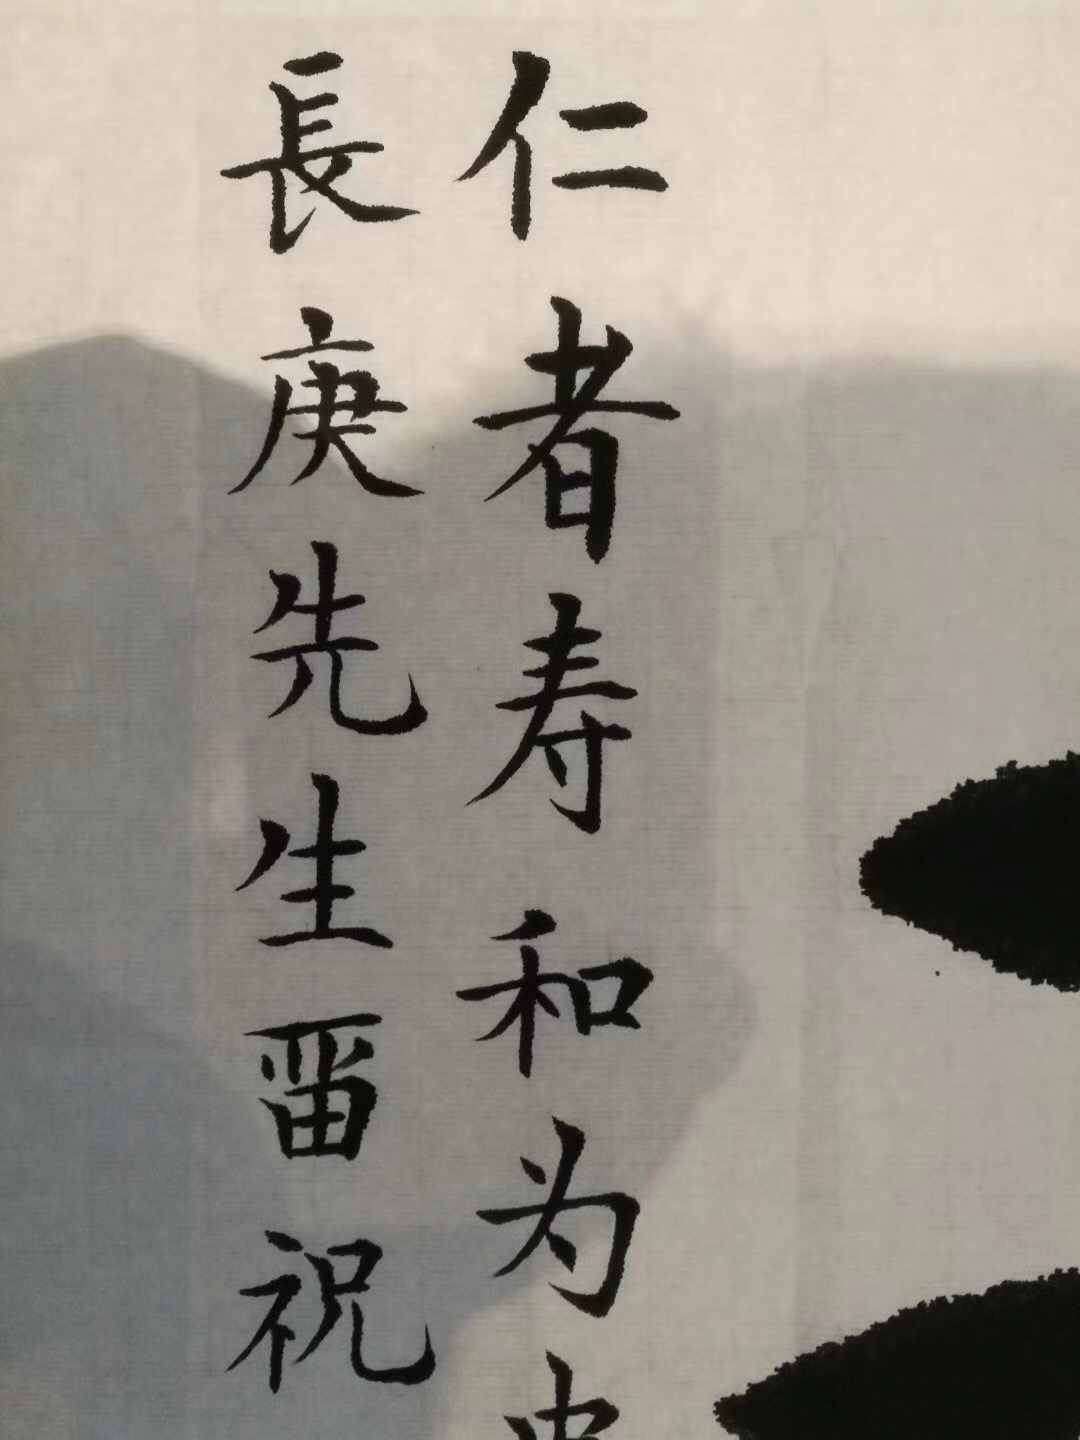 仁者寿和为
長庚先生畱祝